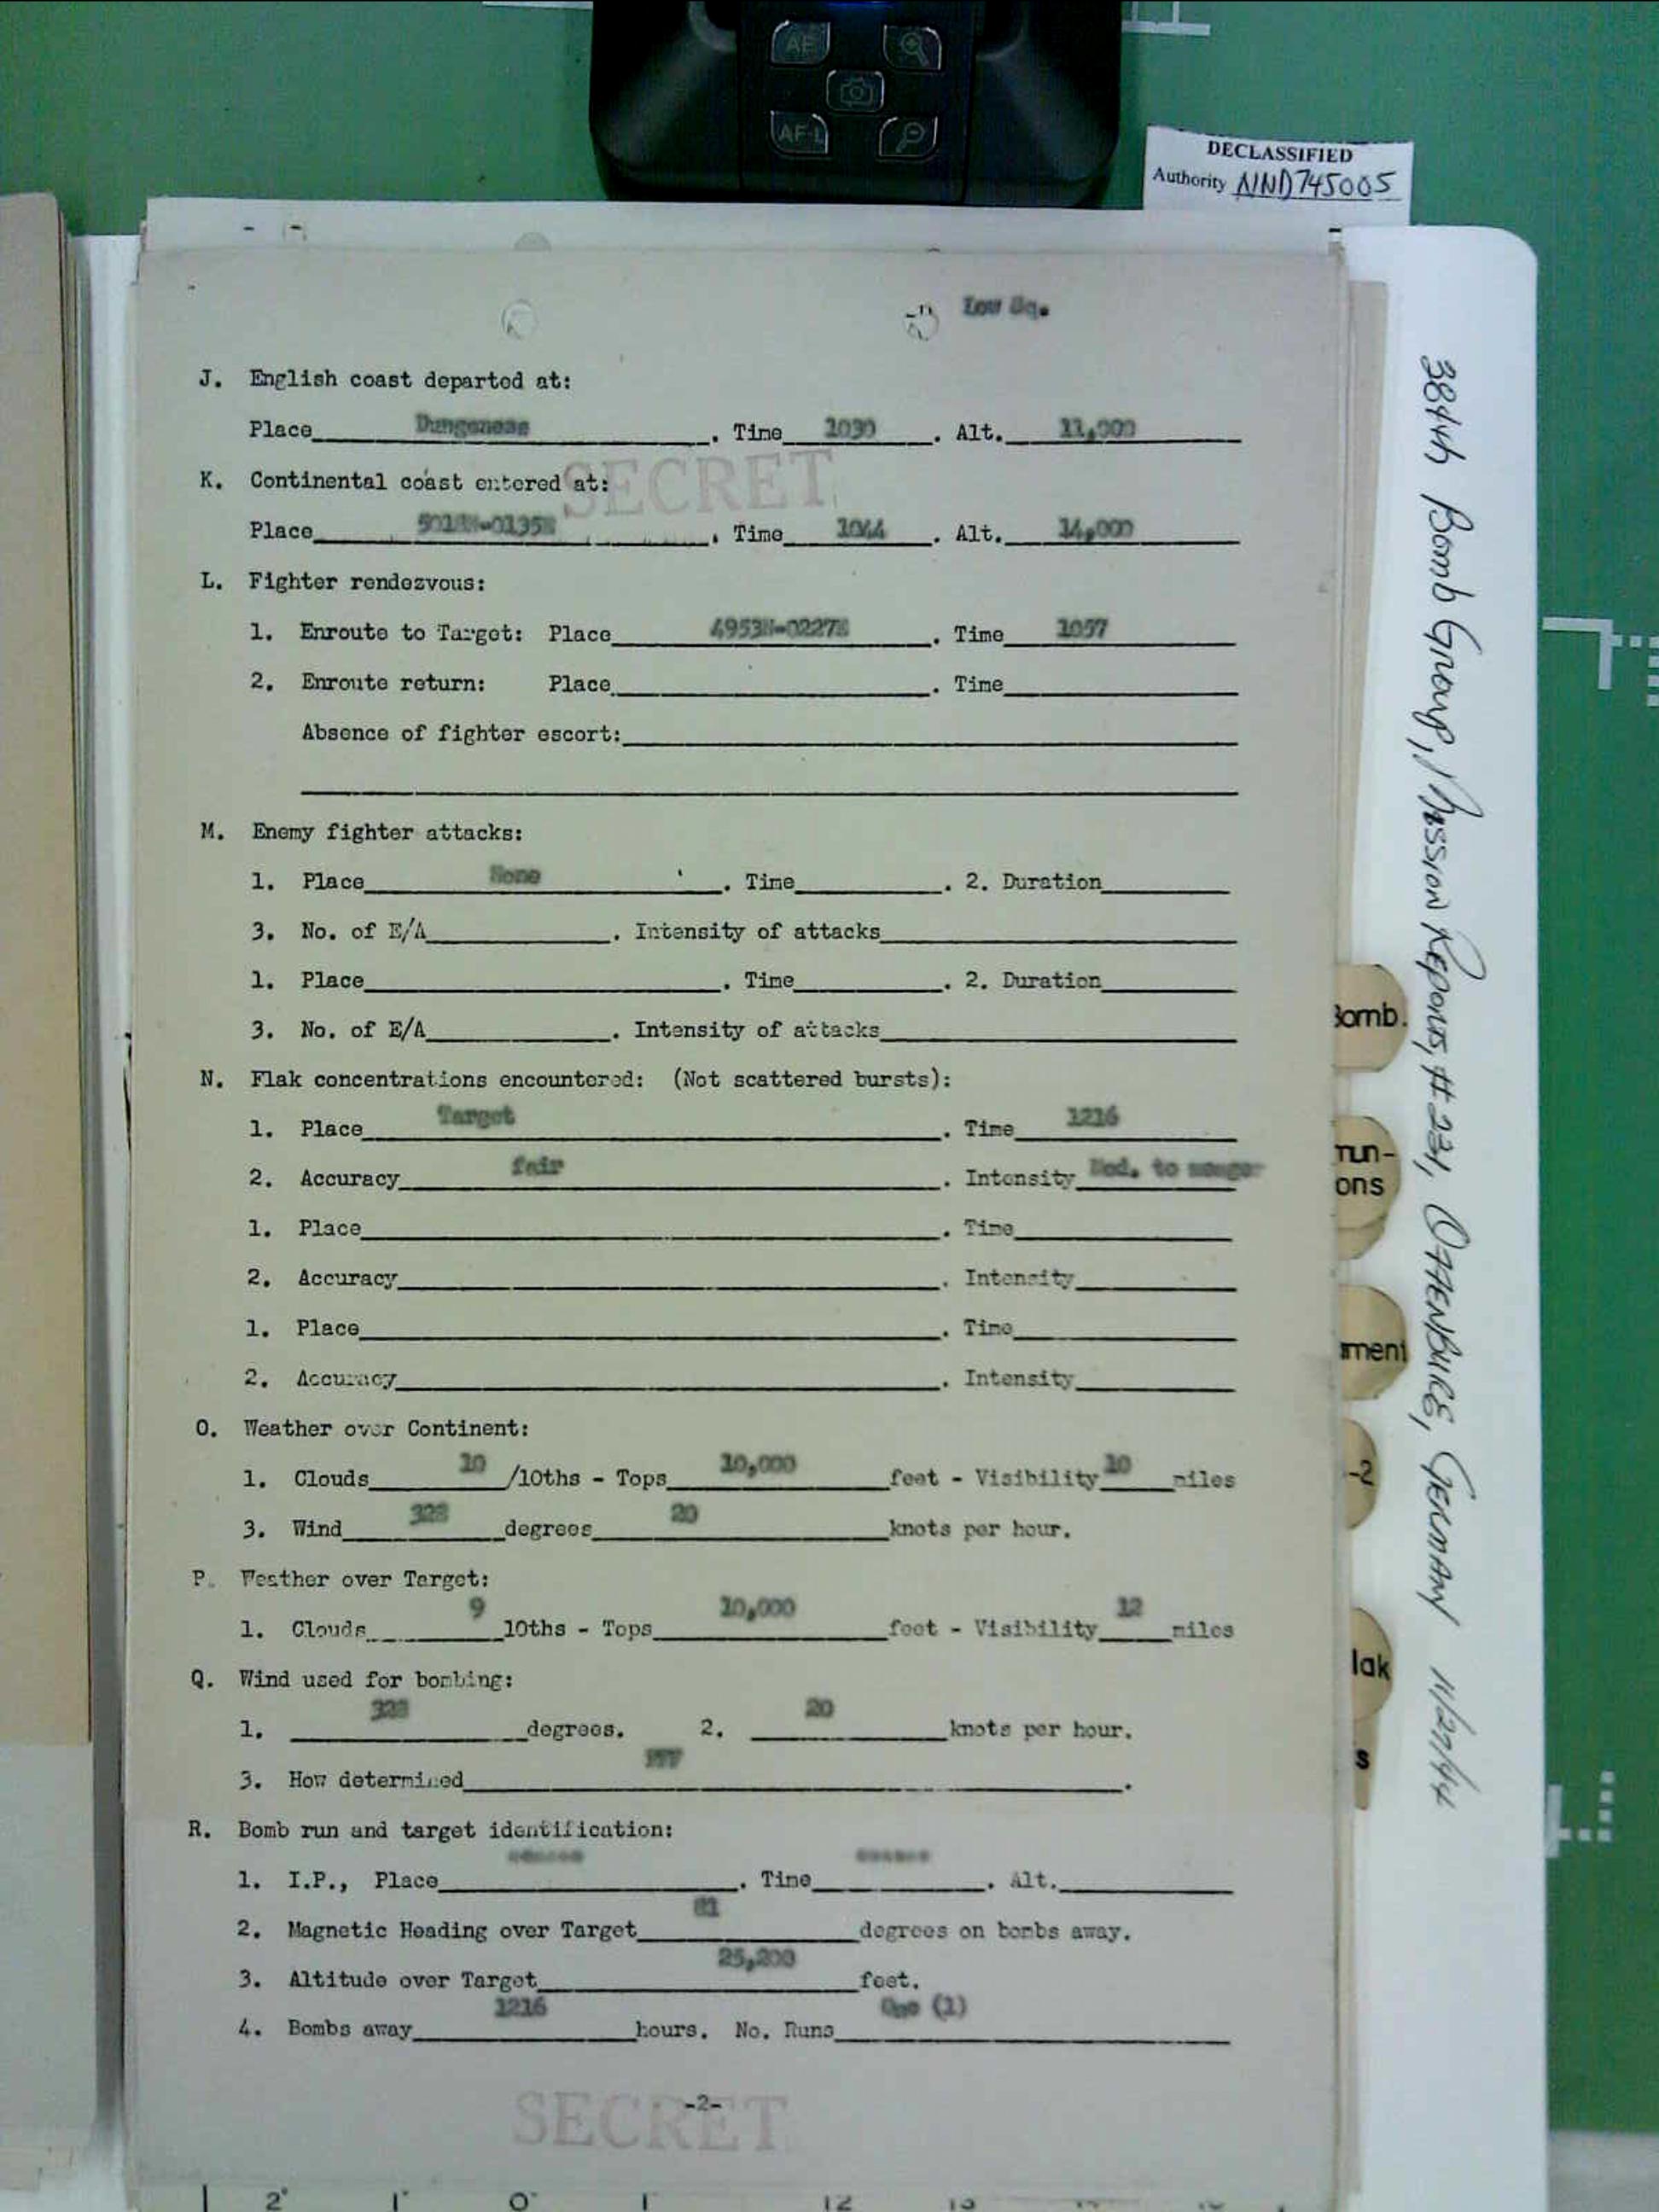 AE
AF-L
DECLASSIFIED
Authority NND745005
Low Sq.
J. English coast departed at:
Place Dungeness . Time 1030 . Alt. 11,000
K. Continental coast entered at:
SECRET
Place 5018N-0135E . Time 1044 . Alt. 14,000
L. Fighter rendezvous:
1. Enroute to Target: Place 4953N-0227E . Time 1057
2. Enroute return: Place . Time
Absence of fighter escort:
M. Enemy fighter attacks:
1. Place None . Time . 2. Duration
3. No. of E/A . Intensity of attacks
1. Place . Time . 2. Duration
3. No. of E/A . Intensity of attacks
N. Flak concentrations encountered: (Not scattered bursts):
1. Place Target . Time 1216
2. Accuracy fair . Intensity Med. to meager
1. Place . Time
2. Accuracy . Intensity
1. Place . Time
2. Accuracy . Intensity
O. Weather over Continent:
1. Clouds 10 /10ths - Tops 10,000 feet - Visibility 10 miles
3. Wind 328 degrees 20 knots per hour.
P. Weather over Target:
1. Clouds 9 10ths - Tops 10,000 feet - Visibility 12 miles
Q. Wind used for bombing:
1. 328 degrees. 2. 20 knots per hour.
3. How determined .
R. Bomb run and target identification:
1. I.P., Place . Time . Alt.
2. Magnetic Heading over Target 81 degrees on bombs away.
3. Altitude over Target 25,200 feet.
4. Bombs away 1216 hours. No. Runs One (1)
-2-
SECRET
384th Bomb Group, Mission Reports, #231, Offenburg, German 11/27/44
Bomb.
run-
ons
ment
-2
lak
s
2" 1" 0" 1 12 13